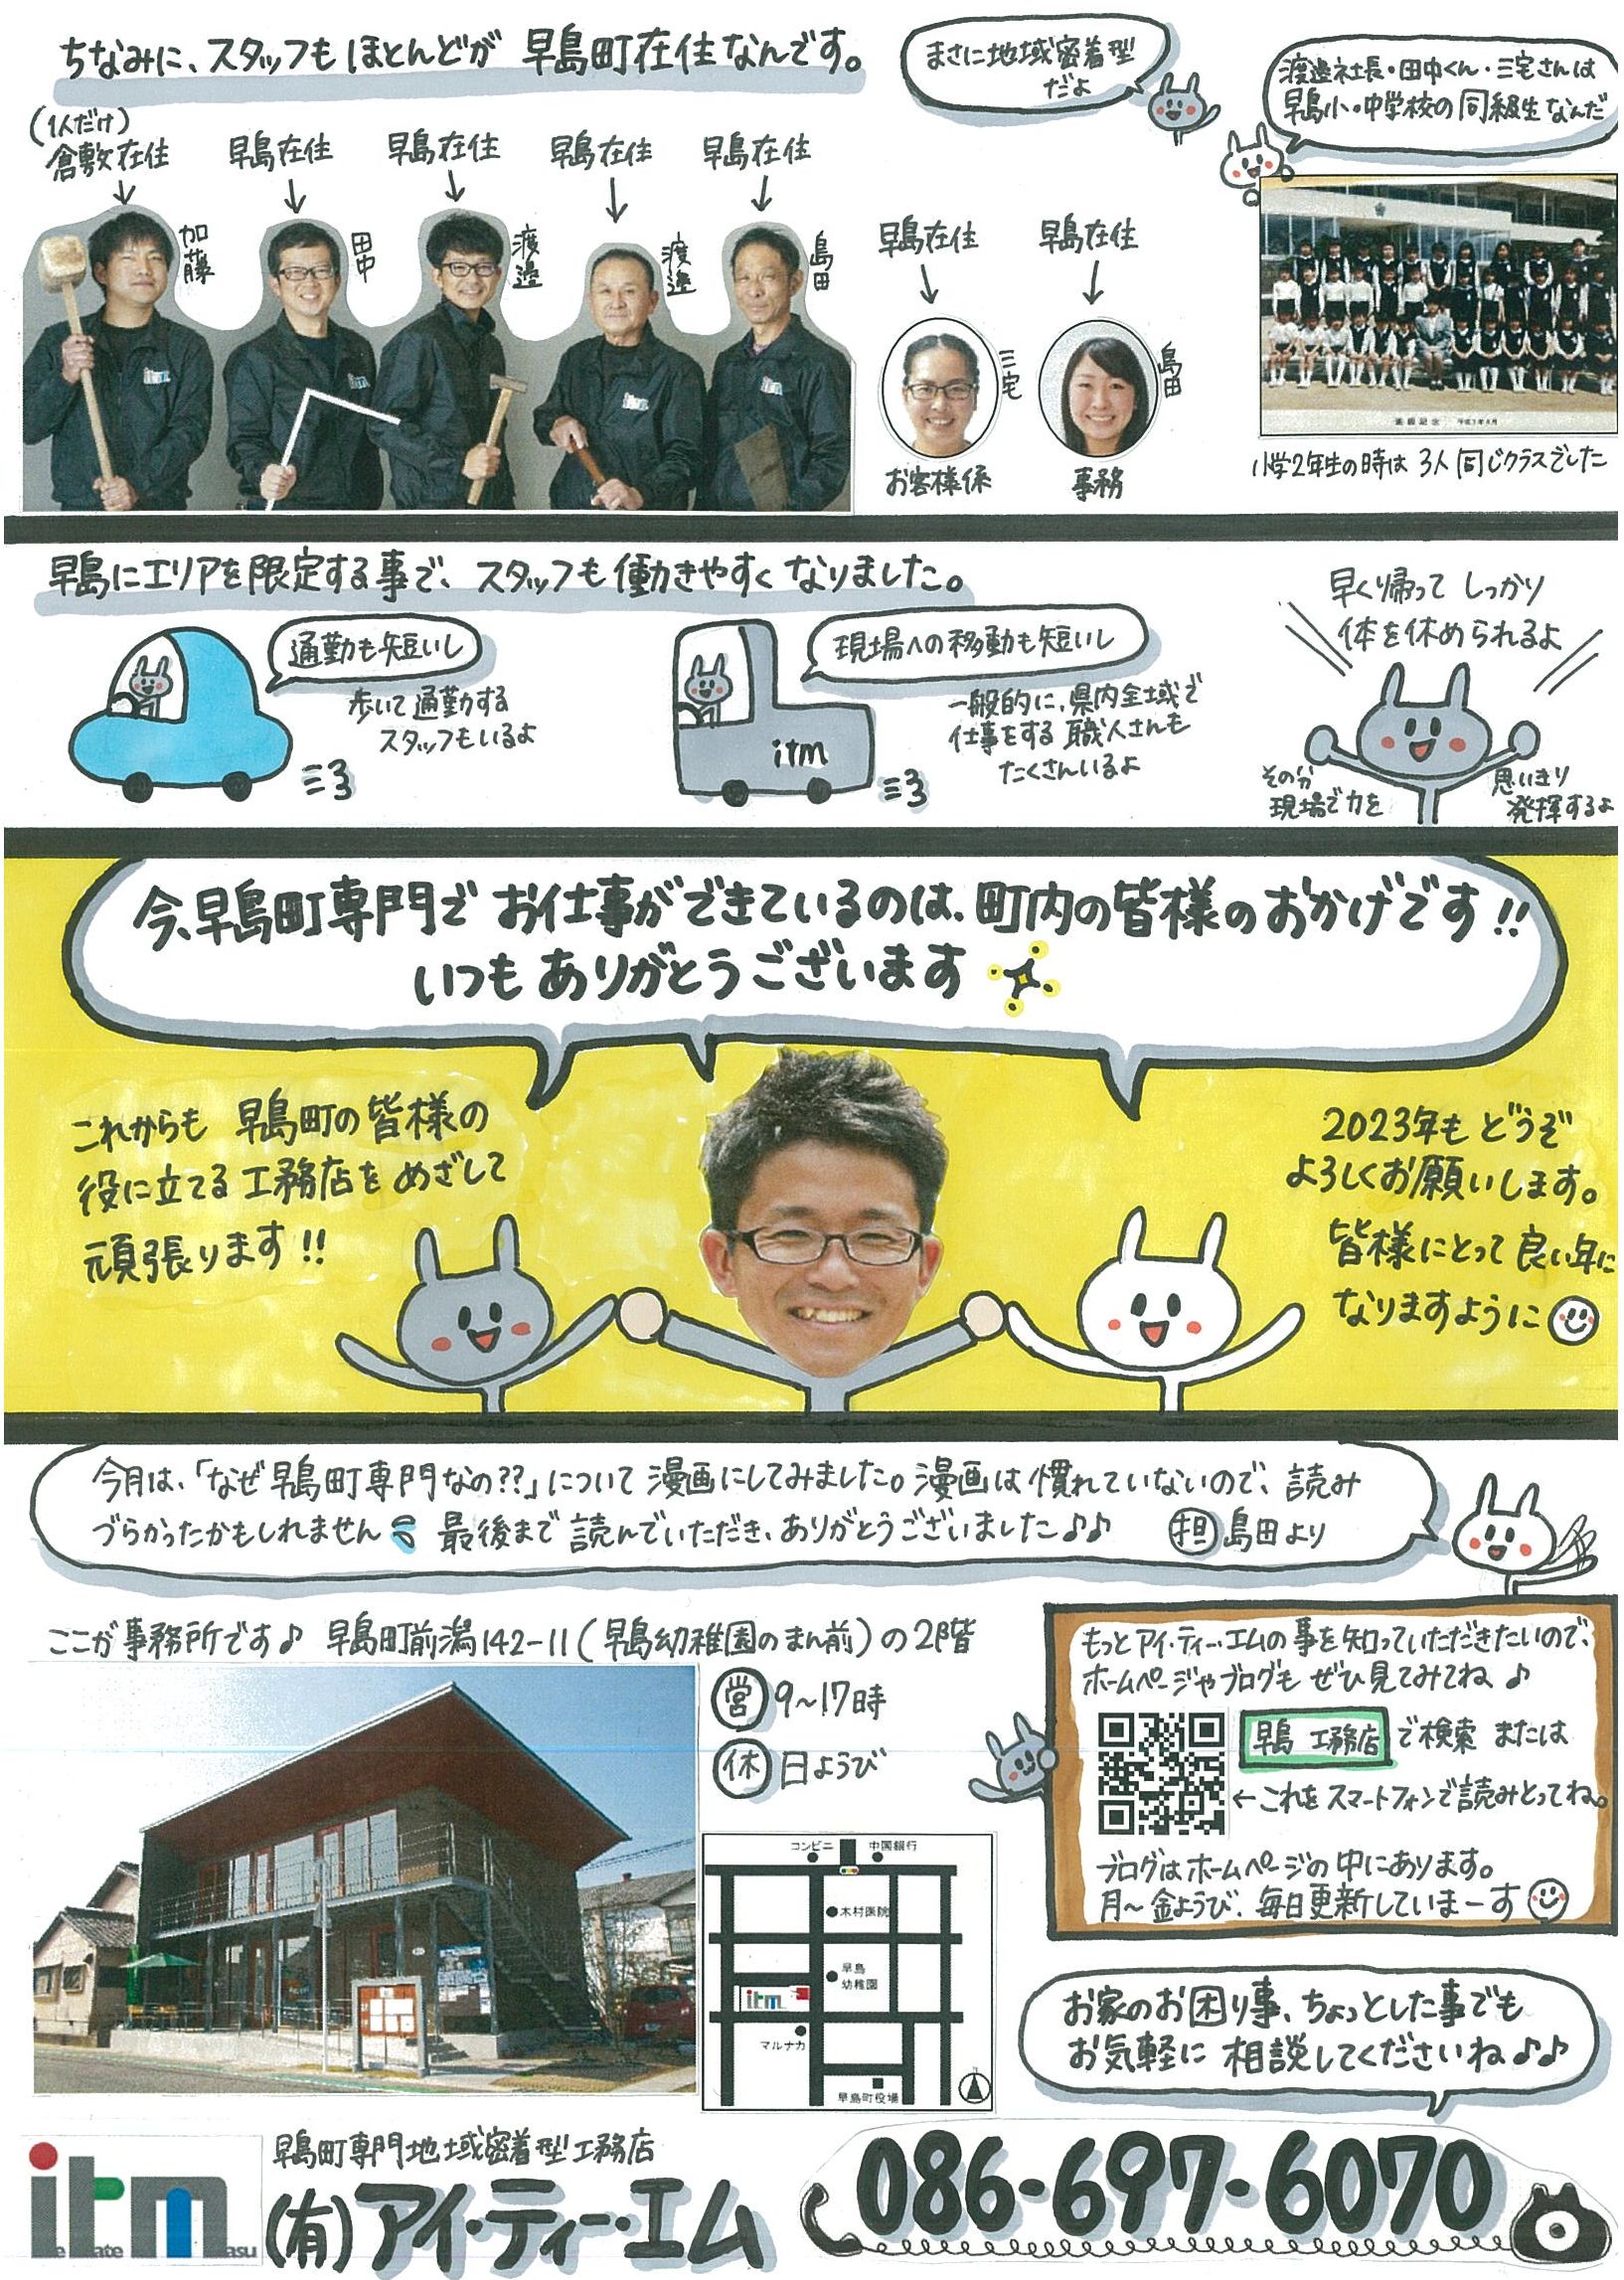 ちなみに、スタッフも ほとんどが 早島町在住なんです。
まさに地域密着型
だよ
渡邊社長・田中くん・三宅さんは
早島小・中学校の同級生なんだ
(1人だけ)
倉敷在住
早島在住
早島在住
早島在住
早島在住
加藤
田中
渡邊
渡邊
島田
itm
itm
itm
早島在住
早島在住
三宅
島田
お客様係
事務
進級記念 平成3年4月
小学2年生の時は 3人 同じクラスでした
早島にエリアを限定する事で、スタッフも 働きやすく なりました。
通勤も短いし
歩いて通勤する
スタッフもいるよ
現場への移動も短いし
一般的に、県内全域で
仕事をする 職人さんも
たくさんいるよ
itm
早く帰って しっかり
体を休められるよ
その分
現場で力を
思いきり
発揮するよ
今、早島町専門で お仕事ができているのは、町内の皆様のおかげです!!
いつも ありがとうございます
これからも 早島町の皆様の
役に立てる 工務店を めざして
頑張ります!!
2023年も どうぞ
よろしくお願いします。
皆様にとって 良い年に
なりますように
今月は、「なぜ早島町専門なの??」について 漫画にしてみました。漫画は慣れていないので、読み
づらかったかもしれません 最後まで 読んでいただき、ありがとうございました♪♪ 担 島田より
ここが事務所です♪ 早島町前潟142-11(早島幼稚園のまん前)の2階
営 9〜17時
休 日ようび
コンビニ
中国銀行
木村医院
早島
幼稚園
itm
マルナカ
早島町役場
もっとアイ・ティー・エムの事を知っていただきたいので、
ホームページやブログも ぜひ見てみてね♪
早島 工務店 で検索 または
←これを スマートフォンで読みとってね。
ブログはホームページの中にあります。
月〜金ようび、毎日更新していまーす
お家のお困り事、ちょっとした事でも
お気軽に 相談してくださいね♪♪
itm
早島町専門地域密着型工務店
(有)アイ・ティー・エム
086-697-6070